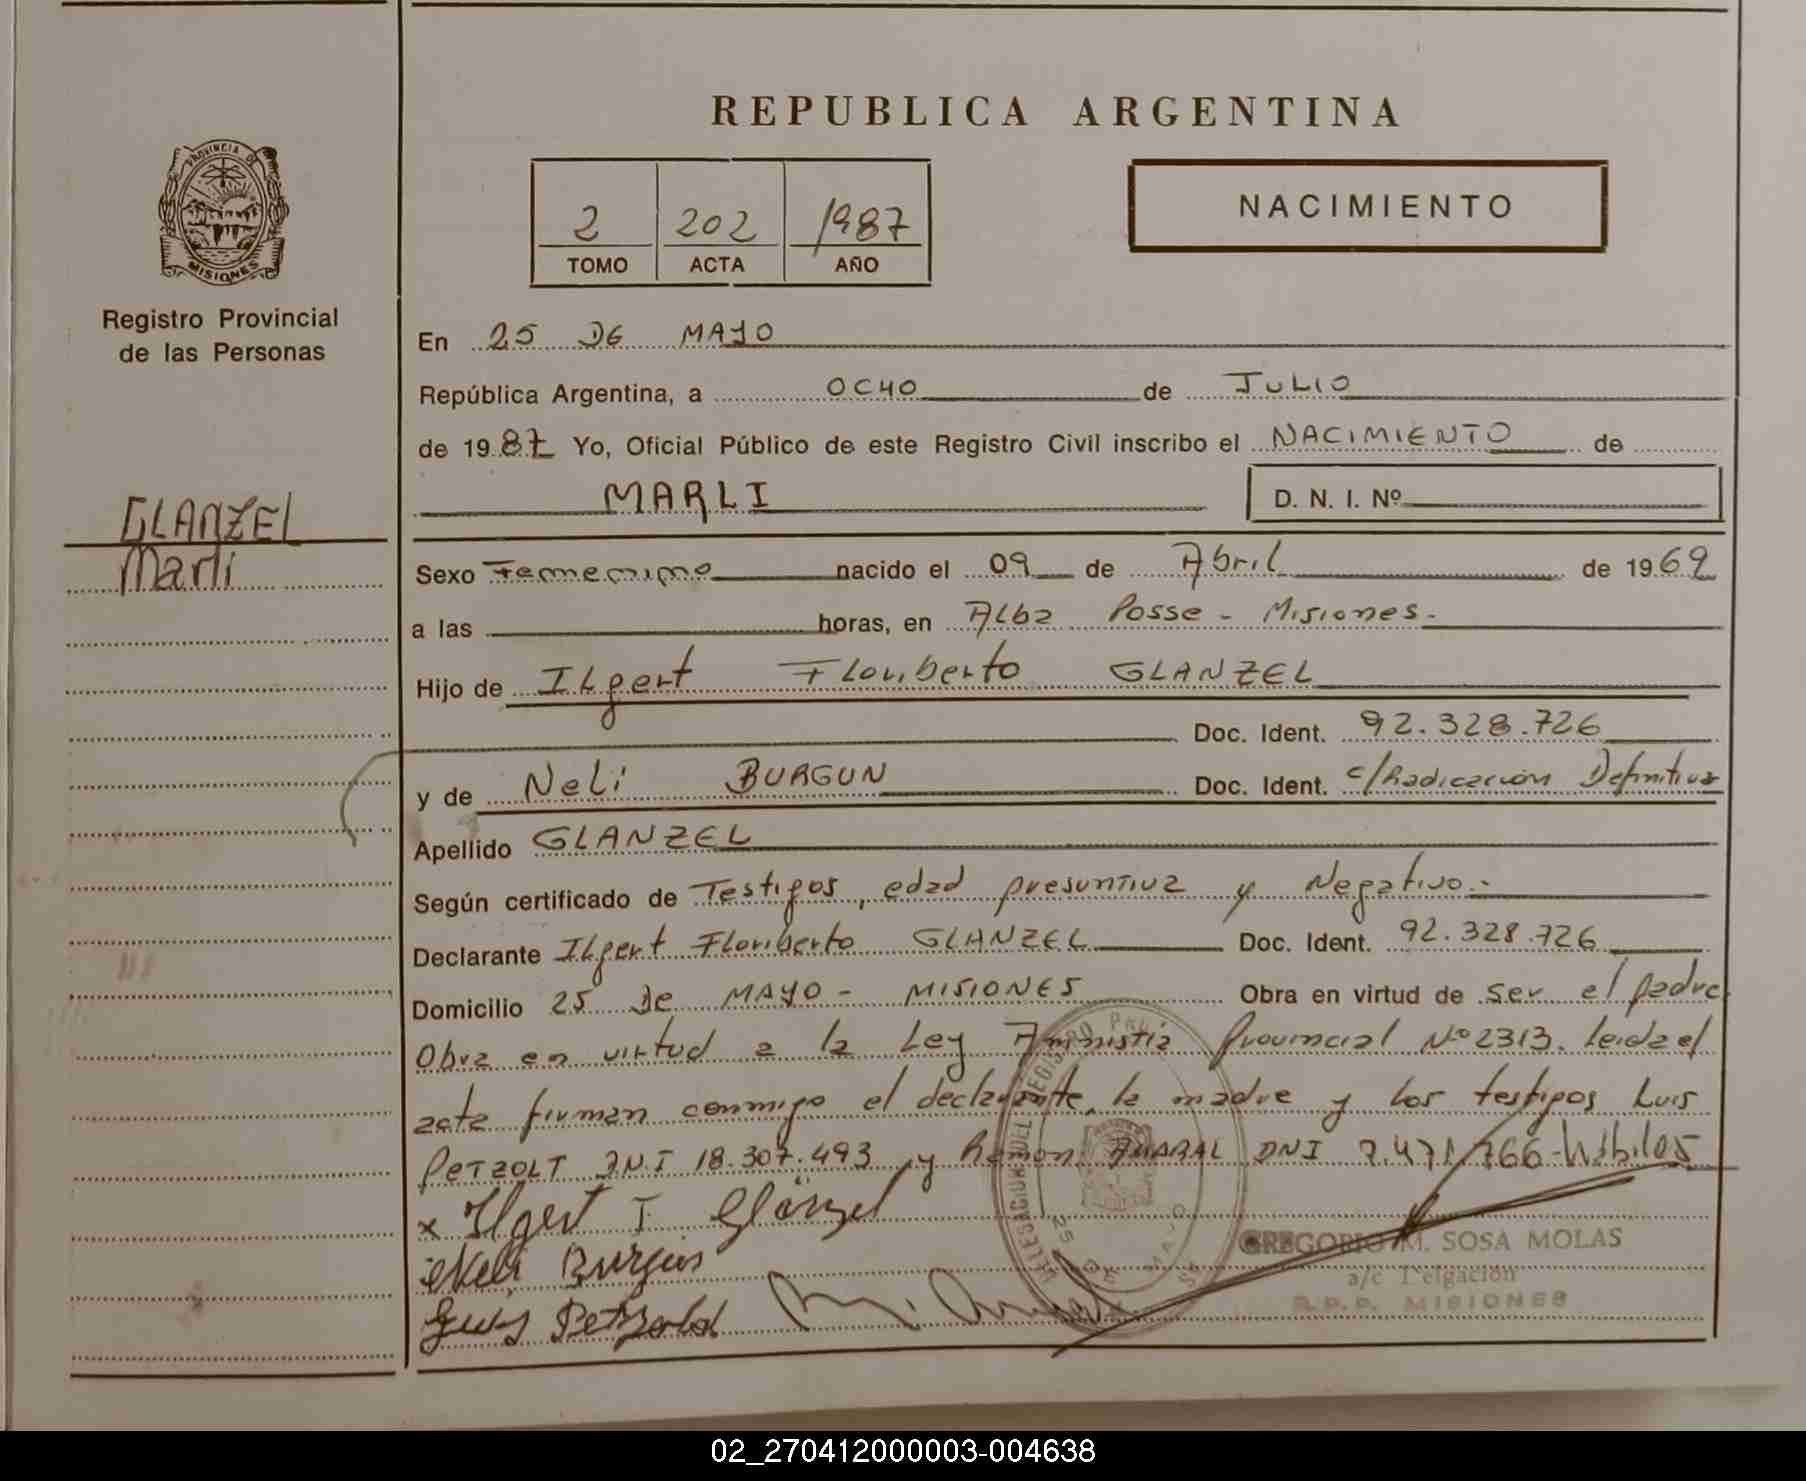 REPUBLICA ARGENTINA
PROVINCIA DE
MISIONES
2 202 1987
TOMO ACTA AÑO
NACIMIENTO
Registro Provincial
de las Personas
GLANZEL
Marli
En 25 DE MAYO
República Argentina, a OCHO de JULIO
de 1987 Yo, Oficial Público de este Registro Civil inscribo el NACIMIENTO de
MARLI D. N. I. Nº
Sexo Femenino nacido el 09 de Abril de 1969
a las horas, en Alba Posse - Misiones.
Hijo de ILgert Floriberto GLANZEL
Doc. Ident. 92.328.726
y de Neli BURGUN Doc. Ident. c/Radicación Definitiva
Apellido GLANZEL
Según certificado de Testigos, edad presuntiva y Negativo.-
Declarante ILgert Floriberto GLANZEL Doc. Ident. 92.328.726
Domicilio 25 De MAYO - MISIONES Obra en virtud de ser el padre
Obra en virtud a la Ley Amnistia Provincial Nº 2313. Leida el
acta firman conmigo el declarante, la madre y los testigos Luis
PETZOLT DNI 18.307.493 y Ramon AMARAL DNI 7.471.766-Hábiles
x Ilgert F. Glänzel
Neli Burgun
Luis Petzold
GREGORIO M. SOSA MOLAS
a/c Delgación
R.P.P. MISIONES
02_270412000003-004638